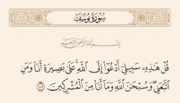 سورة يوسف
بسم الله الرحمن الرحيم
قُلْ هَٰذِهِۦ سَبِيلِىٓ أَدْعُوٓا۟ إِلَى ٱللَّهِ عَلَىٰ بَصِيرَةٍ أَنَا۠ وَمَنِ
ٱتَّبَعَنِى وَسُبْحَٰنَ ٱللَّهِ وَمَآ أَنَا۠ مِنَ ٱلْمُشْرِكِينَ